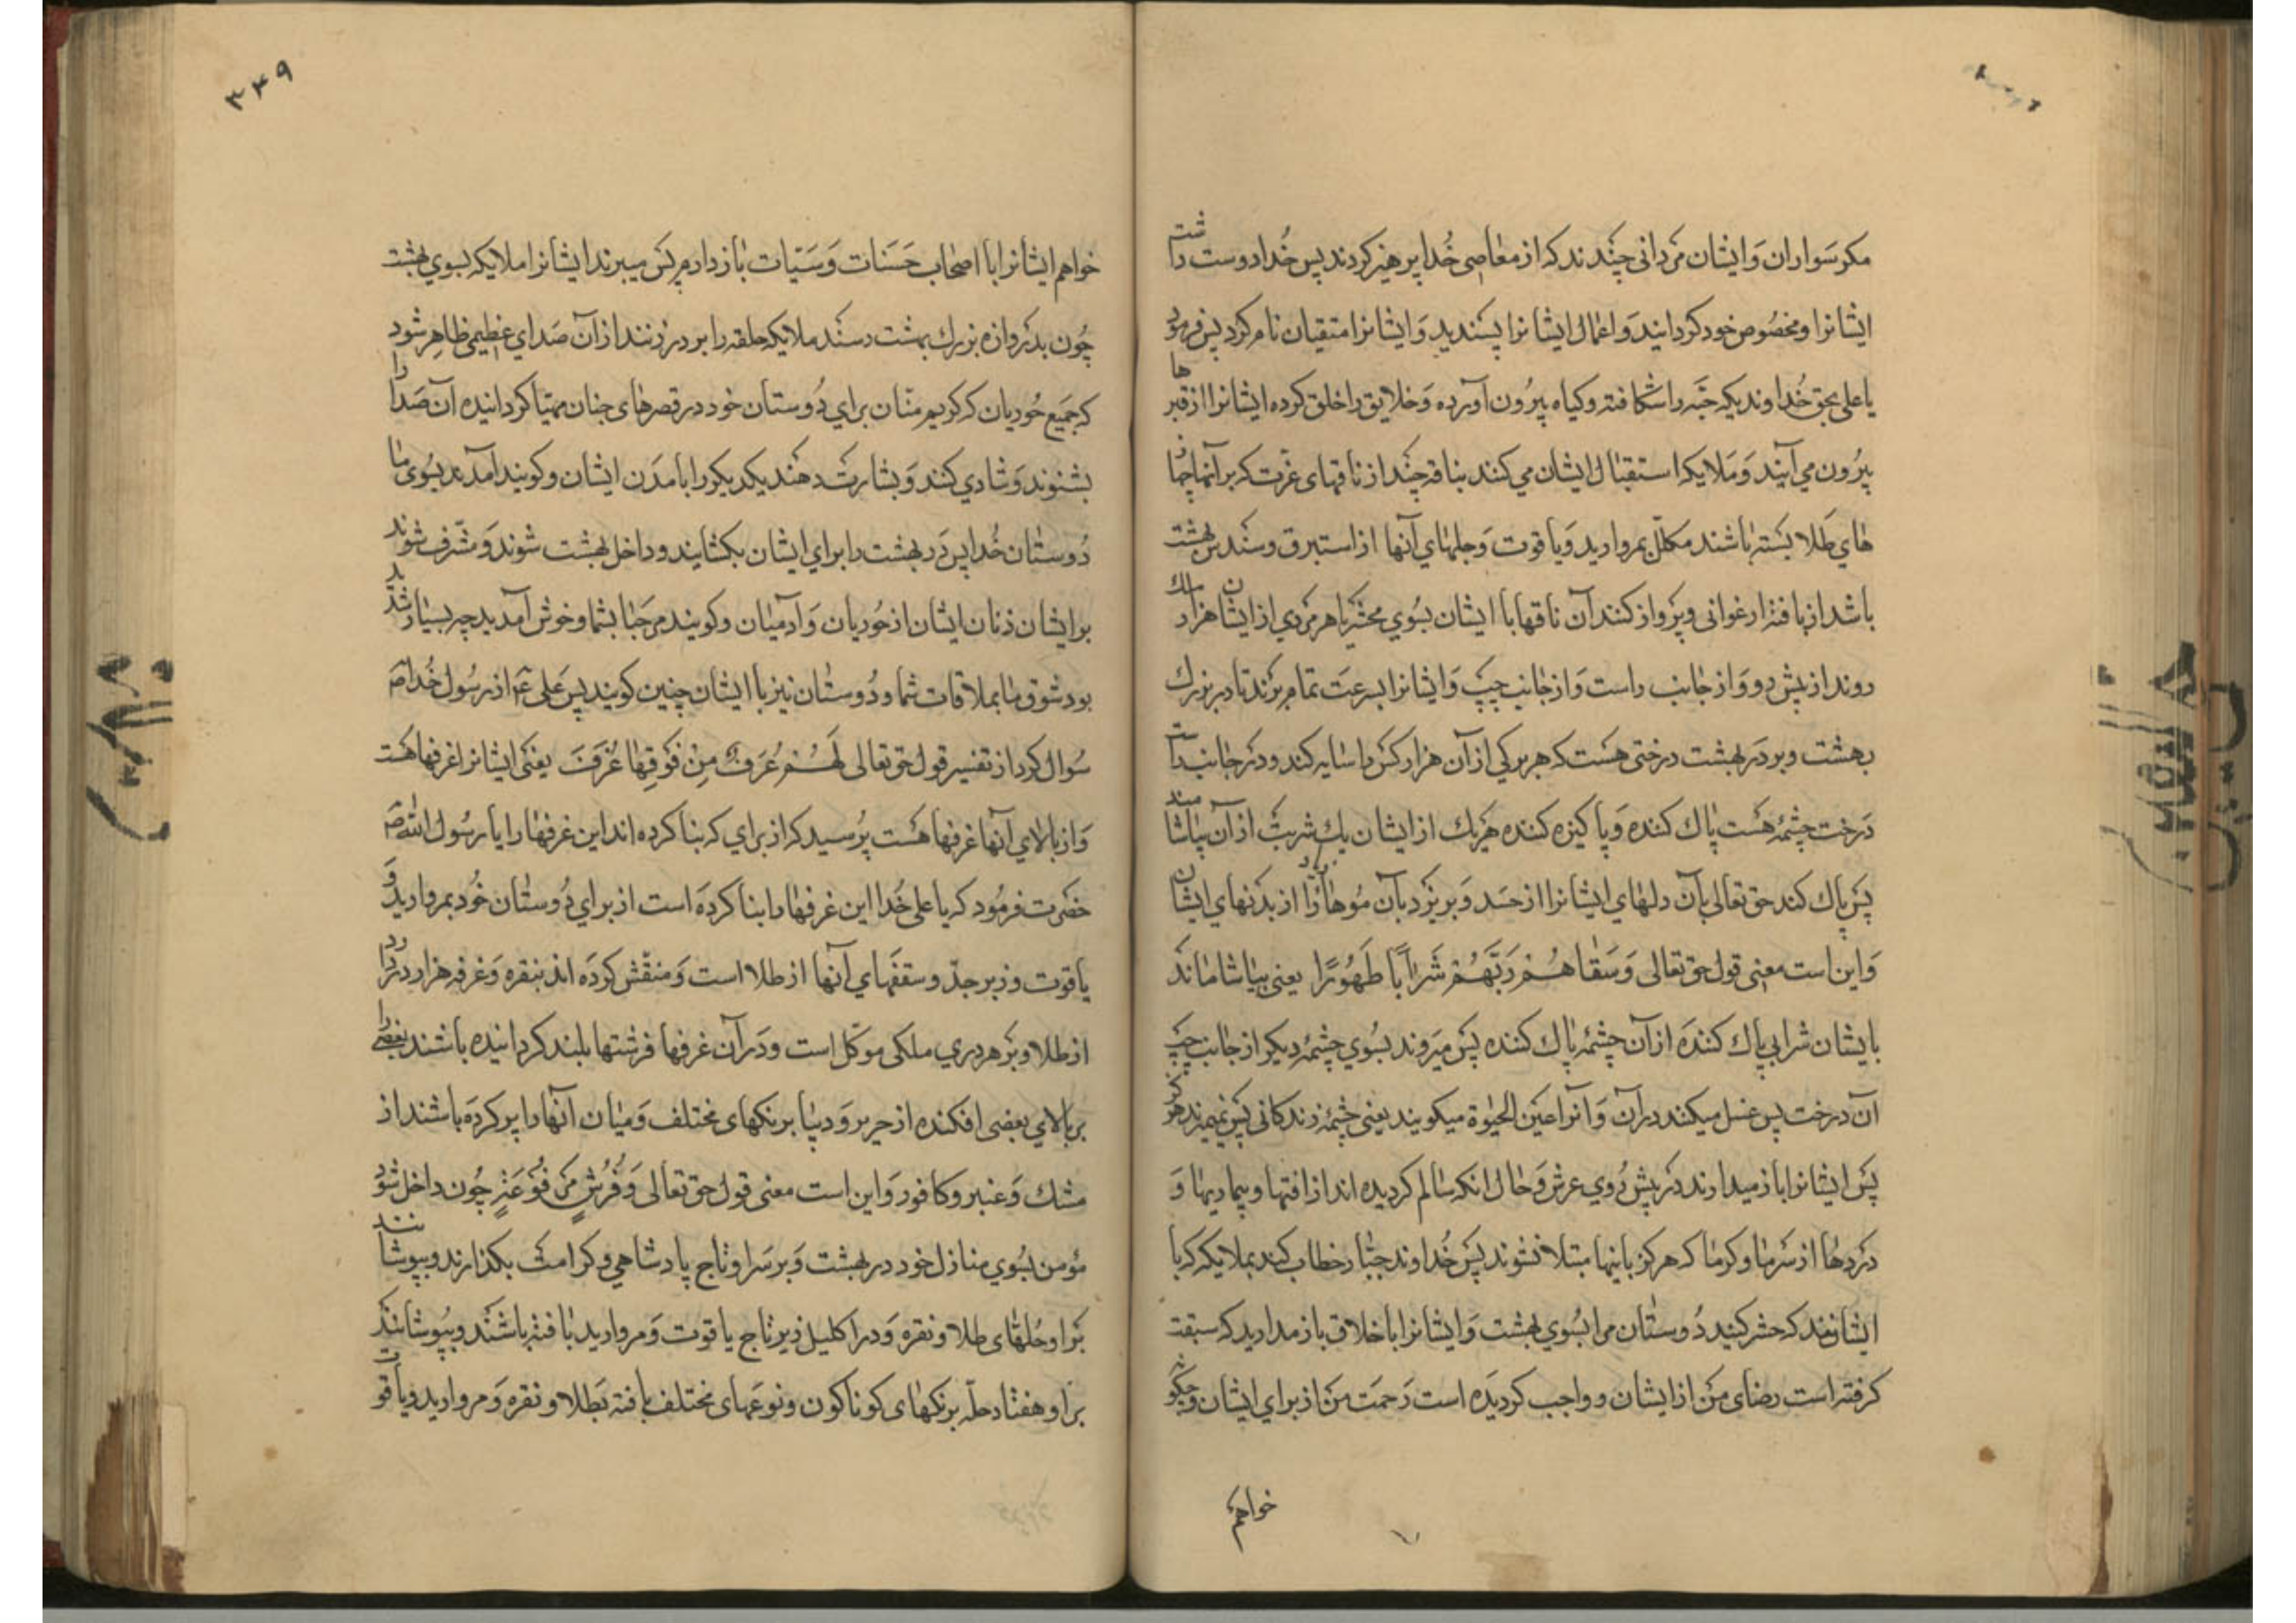 مکر سواران و ایشان مردانی چندند که از معاصی خدا پرهیز کردند پس خدا دوست داشت
ایشانرا و مخصوص خود کردانید و اعمال ایشانرا پسندید و ایشانرا متقیان نام کرد پس فرمود
یا علی بحق خداوندیکه حبه را شکافته و کیاه بیرون آورده و خلایق را خلق کرده ایشانرا از قبرها
بیرون می آیند و ملایکه استقبال ایشان می کنند بناقه چند از ناقهای عزت که بر آنها جهاز
های طلا بسته باشند مکلل بمروارید و یاقوت و جلهای آنها از استبرق و سندس بهشت
باشد از بافته ارغوانی و پرواز کنند آن ناقها با ایشان بسوی محشر با هر مردی از ایشان هزار ملك
روند از پش رو و از جانب راست و از جانب چپ و ایشانرا بسرعت تمام برند تا در بزرك
بهشت و بر در بهشت درختی هست که هر برکی از آن هزار کس را سایه کند و در جانب راست
درخت چشمهٔ هست پاك کننده و پاکیزه کننده هریك از ایشان یك شربت از آن بیاشامند
پس پاك کند حق تعالی بآن دلهای ایشانرا از حسد و بریزد بآن موها را از بدنهای ایشان
و این است معنی قول حق تعالی وَسَقاهُمْ رَبُّهُمْ شَراباً طَهُورًا یعنی بیاشاماند
بایشان شرابی پاك کننده از آن چشمهٔ پاك کننده پس میروند بسوی چشمهٔ دیکر از جانب چپ
آن درخت پس غسل میکنند در آن و آنرا عین الحیوة میکویند یعنی چشمهٔ زندکانی پس نمیرند هرکز
پس ایشانرا باز میدارند در پش روی عرش و حال انکه سالم کردیده اند از افتها و بیماریها و
دردها از سرما و کرما که هرکز باینها مبتلا نشوند پس خداوند جبار خطاب کند بملایکه که با
ایشانند که حشر کنید دوستان مرا بسوی بهشت و ایشانرا با خلایق باز مدارید که سبقت
کرفته است رضای من از ایشان و واجب کردیده است رحمت من از برای ایشان و چکونه
خواهم
۳۴۹
خواهم ایشانرا با اصحاب حسنات و سیّات باز دارم پس میبرند ایشانرا ملایکه بسوی بهشت
چون بدروازه بزرك بهشت رسند ملایکه حلقه را بر در زنند از آن صدای عظیمی ظاهر شود
که جمیع حوریان که کریم منّان برای دوستان خود در قصرهای جنان مهیّا کردانیده آن صدا را
بشنوند و شادی کنند و بشارت دهند یکدیکر را بامدن ایشان و کویند آمدند بسوی ما
دوستان خدا پس در بهشت را برای ایشان بکشایند و داخل بهشت شوند و مشرف شوند
بر ایشان زنان ایشان از حوریان و آدمیان و کویند مرحبا بشما و خوش آمدید چه بسیار شدید
بود شوق ما بملاقات شما و دوستان نیز با ایشان چنین کویند پس علی ع از رسول خدا ص
سوال کرد از تفسیر قول حق تعالی لَهُمْ غُرَفٌ مِنْ فَوْقِها غُرَفٌ یعنی ایشانرا غرفها هست
و از بالای آنها غرفها هست پرسید که از برای که بنا کرده اند این غرفها را یا رسول الله ص
حضرت فرمود که یا علی خدا این غرفها را بنا کرده است از برای دوستان خود بمروارید و
یاقوت و زبرجد و سقفهای آنها از طلا است و منقّش کرده اند بنقره و غرفه هزار در دارد
از طلا و بر هر دری ملکی موکّل است و در آن غرفها فرشتها بلند کردانیده باشند بعضی را
بر بالای بعضی افکنده از حریر و دیبا برنکهای مختلف و میان آنها را پر کرده باشند از
مشك و عنبر و کافور و این است معنی قول حق تعالی وَفُرُشٍ مَرْفُوعَةٍ چون داخل شود
مؤمن بسوی منازل خود در بهشت و بر سر او تاج پادشاهی و کرامت بکذارند و بپوشانند
بر او حلهای طلا و نقره و در اکلیل زیر تاج یاقوت و مروارید بافته باشند و بپوشانند
بر او هفتاد حلّه برنکهای کوناکون و نوعهای مختلف بافته بطلا و نقره و مروارید و یاقوت